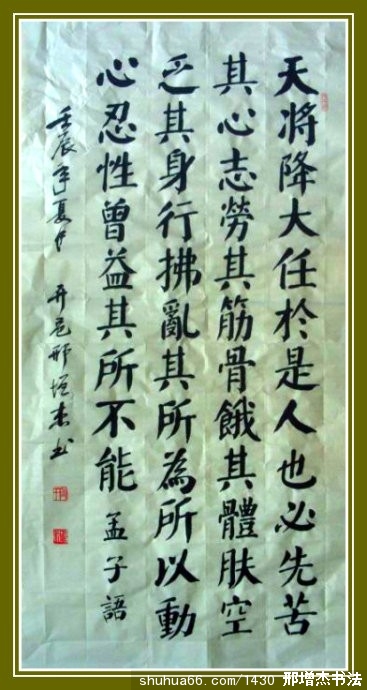 天将降大任於是人也必先苦
其心志勞其筋骨餓其體肤空
乏其身行拂亂其所為所以動
心忍性曾益其所不能 孟子語
壬辰年夏月 邢增杰书
shuhua66.com/1430 邢增杰书法